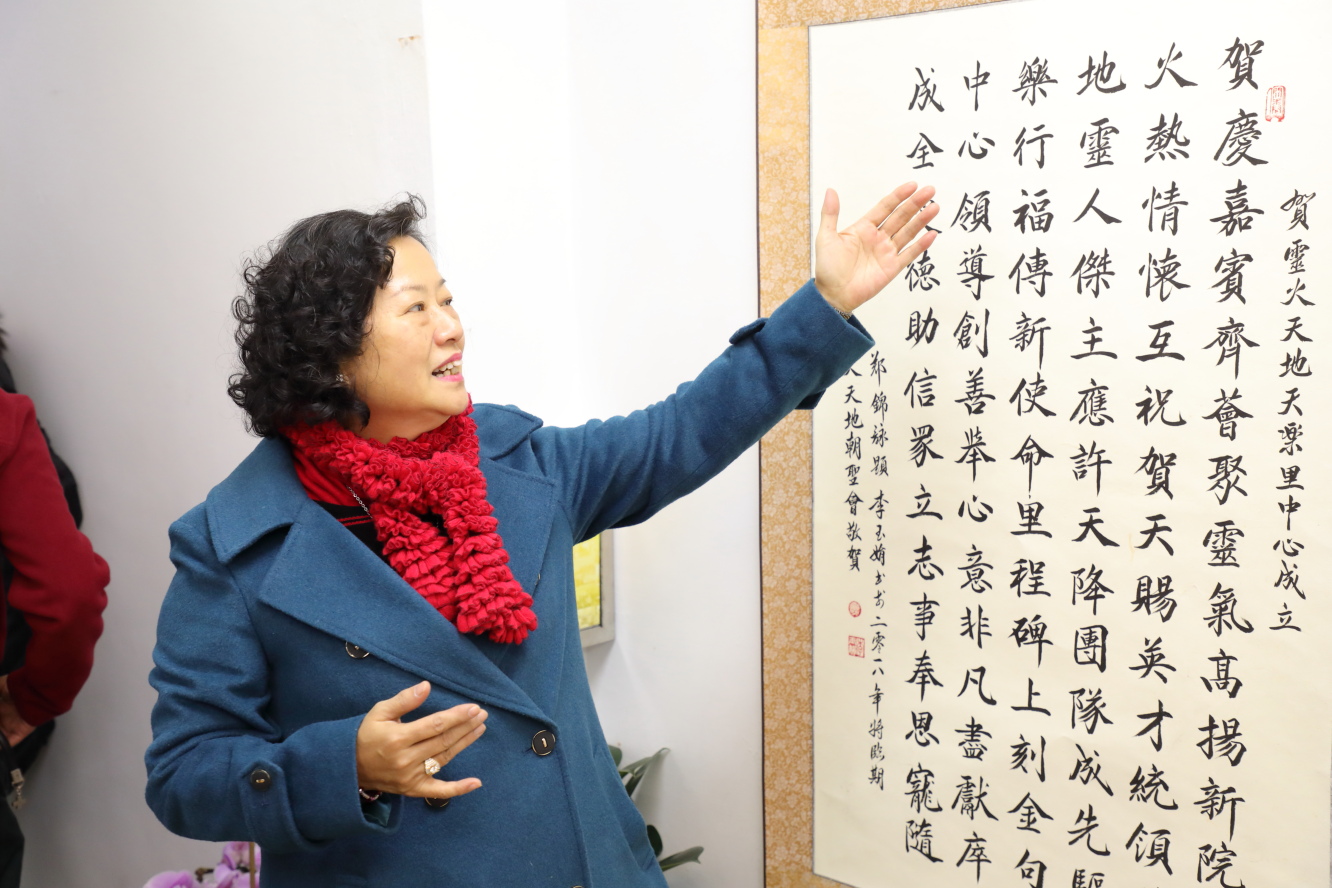 賀靈火天地天楽里中心成立
賀慶嘉賓齊薈聚靈氣髙揚新院
火熱情懷互祝賀天賜英才統領
地靈人傑主應許天降團隊成先驅
樂行福傳新使命里程碑上刻金句
中心領導創善舉心意非凡盡獻
成全德助信眾立志事奉恩寵隨
郑錦詠題 李玉娟书於二零一八年将臨期
天地朝聖會敬賀